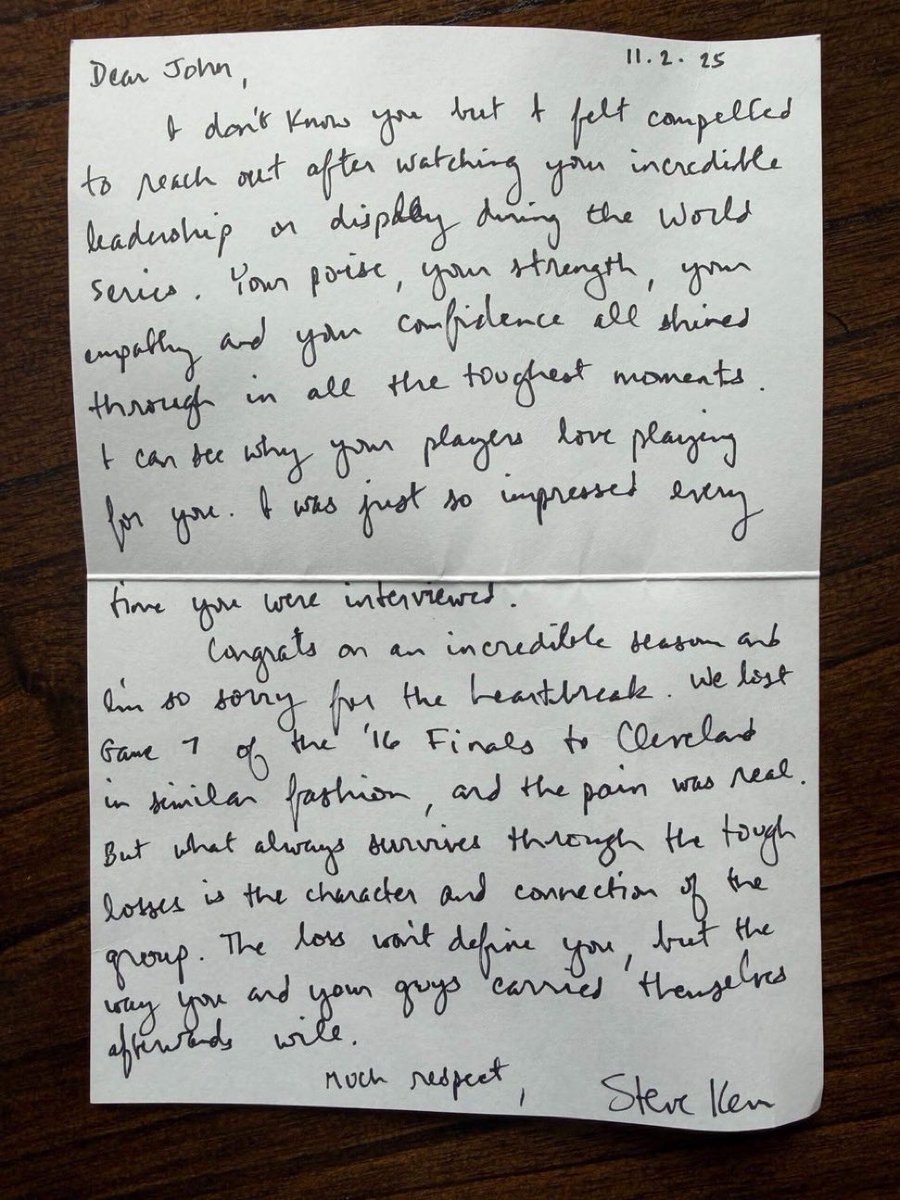 Dear John,
11.2.25
I don't know you but I felt compelled
to reach out after watching your incredible
leadership on display during the World
Series. Your poise, your strength, your
empathy and your confidence all shined
through in all the toughest moments.
I can see why your players love playing
for you. I was just so impressed every
time you were interviewed.
Congrats on an incredible season and
I'm so sorry for the heartbreak. We lost
Game 7 of the '16 Finals to Cleveland
in similar fashion, and the pain was real.
But what always survives through the tough
losses is the character and connection of the
group. The loss won't define you, but the
way you and your guys carried themselves
afterwards will.
Much respect,
Steve Kerr